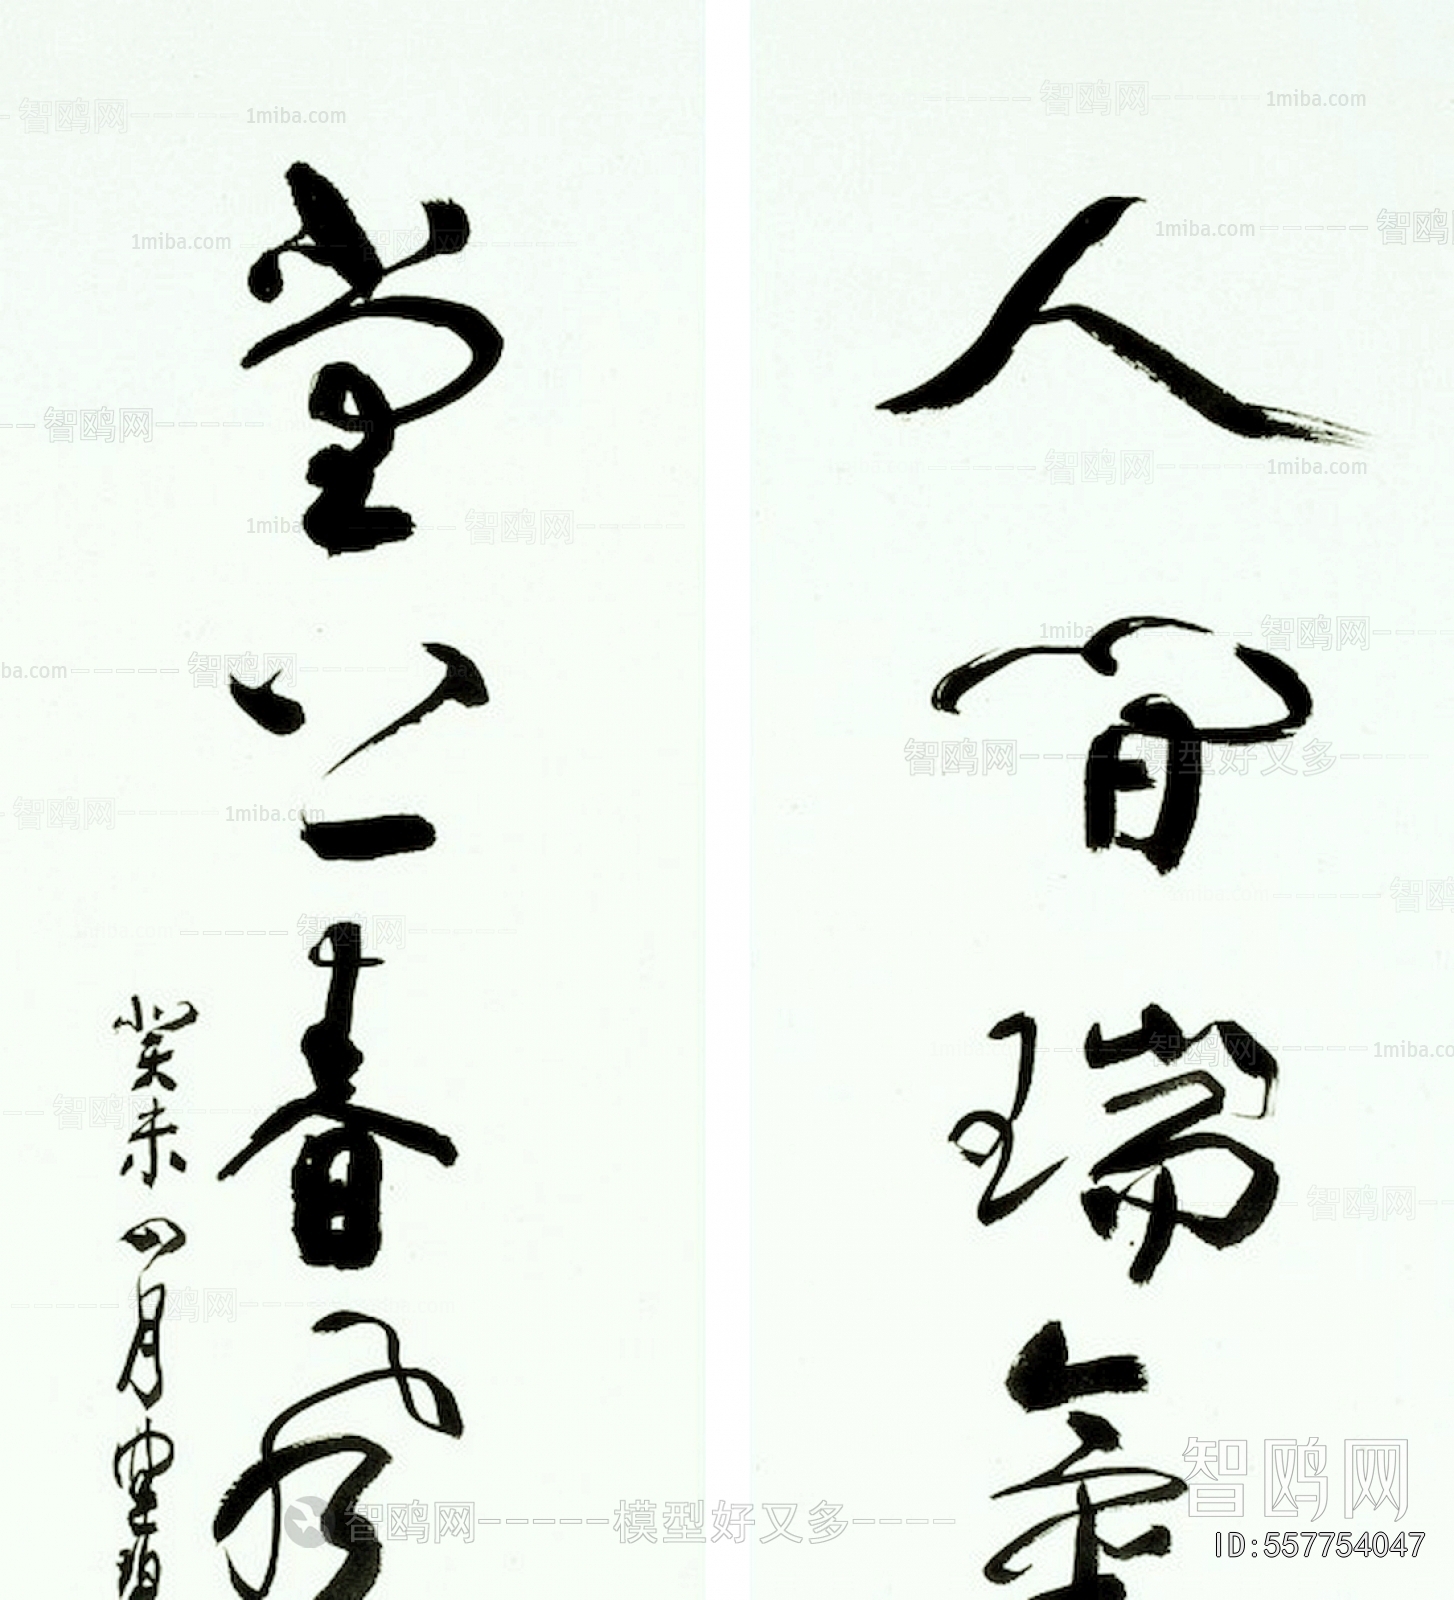 人間瑞氣
堂上春風
癸未四月
智鸥网 1miba.com
智鸥网-----模型好又多----
智鸥网
ID:557754047